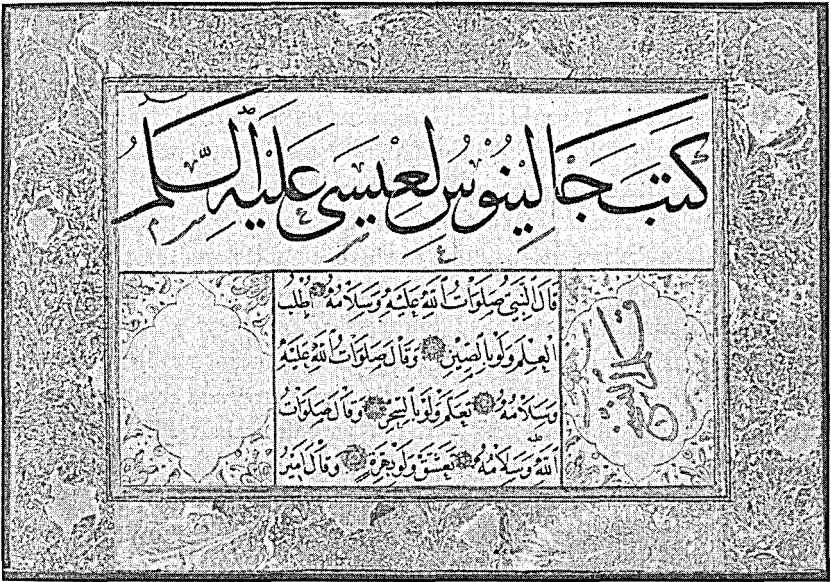 كَتَبَ جَالِينُوسُ لِعِيسَى عَلَيْهِ السَّلَم
قَالَ النَّبِيُّ صَلَوَاتُ اللَّهِ عَلَيْهِ وَسَلَامُهُ اُطْلُبُ
العِلْمَ وَلَوْ بِالصِّينِ وَقَالَ صَلَوَاتُ اللَّهِ عَلَيْهِ
وَسَلَامُهُ تَعَلَّمْ وَلَوْ بِالسِّحْرِ وَقَالَ صَلَوَاتُ
اللَّهِ وَسَلَامُهُ تَعَشَّقْ وَلَوْ وَقَالَ اَمِيرُ